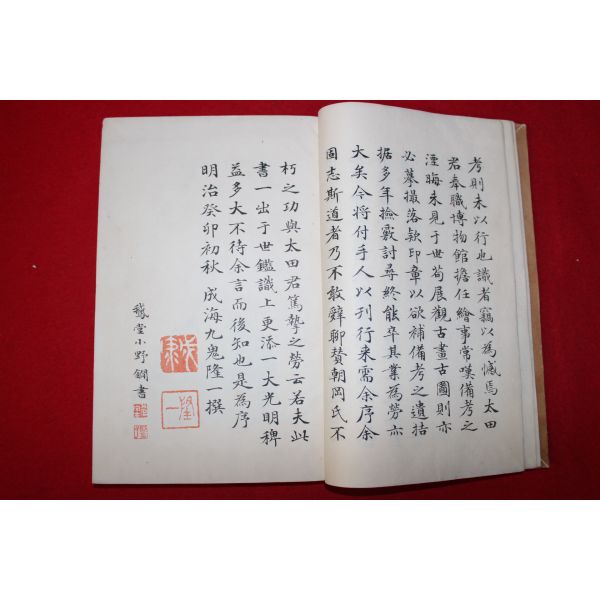 考則未以行也識者竊以為憾焉太田
君奉職博物館擔任繪事常嘆備考之
湮晦未見于世苟展觀古畫古圖則亦
必摹撮落款印章以欲補備考之遺拮
据多年撿覈討尋終能卒其業為勞亦
大矣今將付手人以刊行来需余序余
固志斯道者乃不敢辭聊贊朝岡氏不
朽之功與太田君篤摯之勞云若夫此
書一出于世鑑識上更添一大光明稗
益多大不待余言而後知也是為序
明治癸卯初秋 成海九鬼隆一撰
隆一
堂小野鋼書